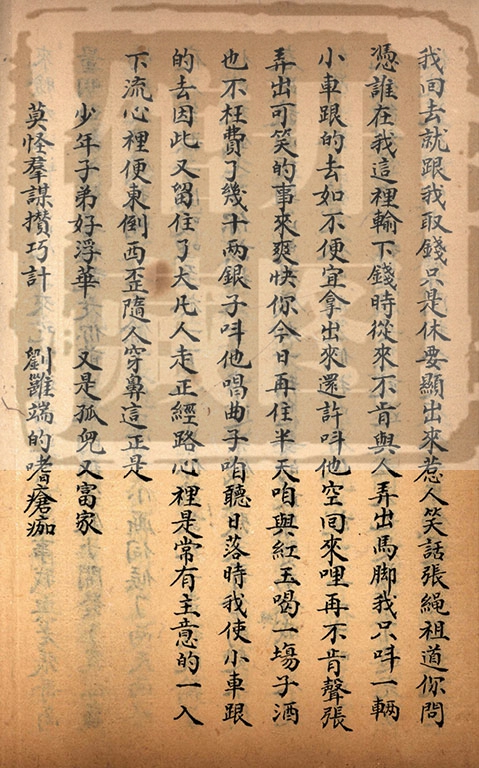 我回去就跟我取錢只是休要顯出來惹人笑話張繩祖道你問
憑誰在我這裡輸下錢時從來不肯與人弄出馬脚我只呌一輛
小車跟的去如不便宜拿出來還許呌他空回來哩再不肯聲張
弄出可笑的事來爽快你今日再住半天咱與紅玉喝一塲子酒
也不枉費了幾十兩銀子呌他唱曲子咱聽日落時我使小車跟
的去因此又留住了大凡人走正經路心裡是常有主意的一入
下流心裡便東倒西歪隨人穿鼻這正是
少年子弟好浮華 又是孤兒又富家
莫怪羣謀攅巧計 劉邕端的嗜瘡痂